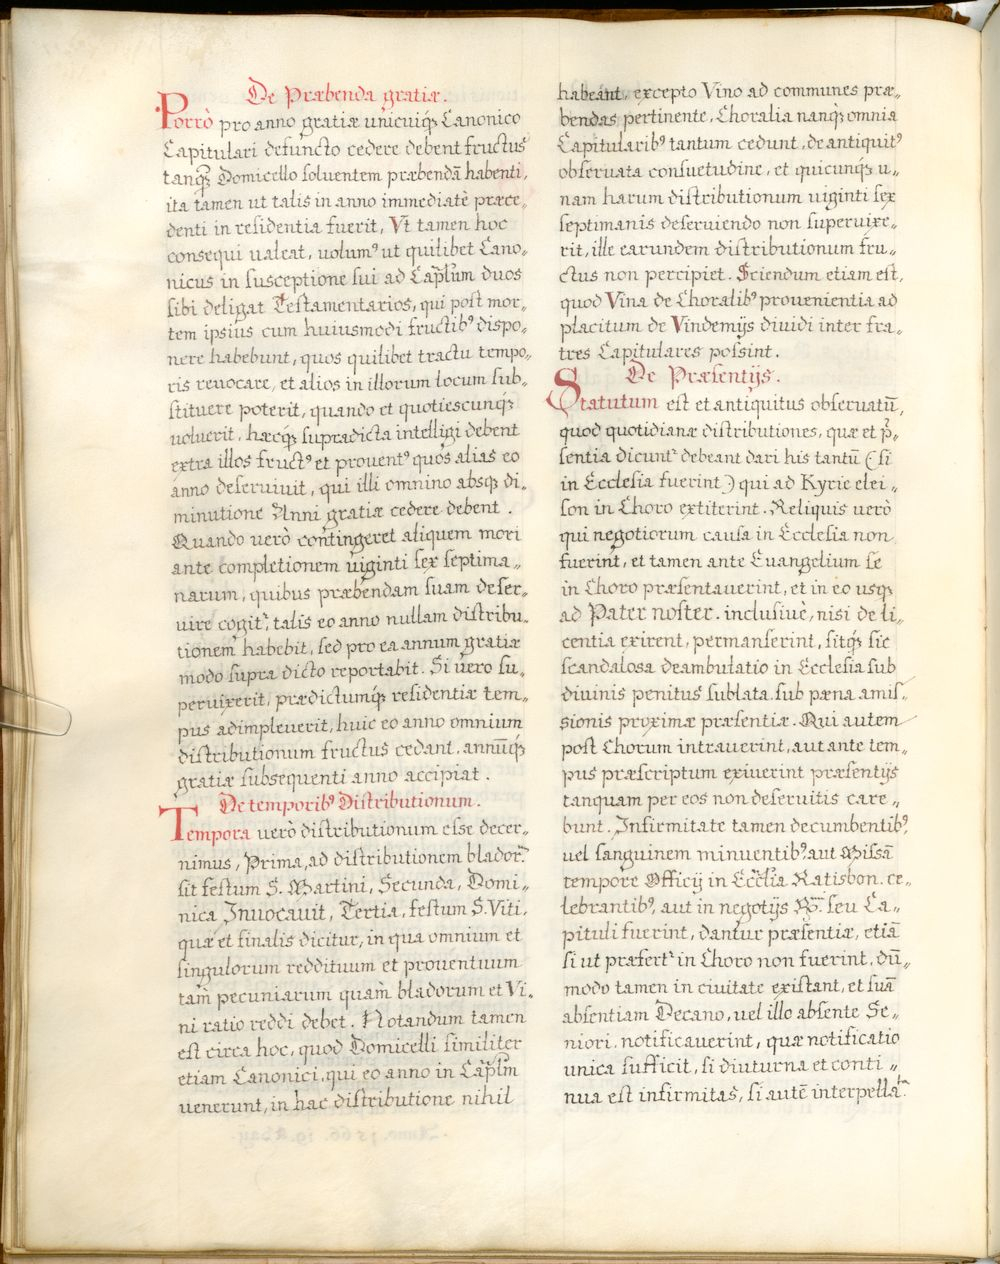 De Præbenda gratiæ.
Porrò pro anno gratiæ unicuiq; Canonico
Capitulari defuncto cedere debent fructus
tanq̃ Domicello soluentem præbendā habenti,
ita tamen ut talis in anno immediatè præce„
denti in residentia fuerit, Vt tamen hoc
consequi ualeat, uolum⁹ ut quilibet Cano„
nicus in susceptione sui ad Cap̃lm duos
sibi deligat Testamentarios, qui post mor„
tem ipsius cum huiusmodi fructib⁹ dispo„
nere habebunt, quos quilibet tractu tempo„
ris reuocare, et alios in illorum locum sub„
stituere poterit, quando et quotiescunq;
uoluerit, hæcq; supradicta intelligi debent
extra illos fruct⁹ et prouent⁹ quos alias eo
anno deseruiuit, qui illi omnino absq; di„
minutione Anni gratiæ cedere debent.
Quando uerò contingeret aliquem mori
ante completionem uiginti sex septima„
narum, quibus præbendam suam deser„
uire cogit², talis eo anno nullam distribu„
tionem habebit, sed pro ea annum gratiæ
modo supra dicto reportabit. Si uero su„
peruixerit, prædictumq; residentiæ tem„
pus adimpleuerit, huic eo anno omnium
distributionum fructus cedant, annūq;
gratiæ subsequenti anno accipiat.
De temporib⁹ Distributionum.
Tempora uerò distributionum esse decer„
nimus, Prima, ad distributionem blador̃
sit festum S. Martini, Secunda, Domi„
nica Inuocauit, Tertia, festum S. Viti,
quæ et finalis dicitur, in qua omnium et
singulorum reddituum et prouentuum
tam̀ pecuniarum quam̀ bladorum et Vi„
ni ratio reddi debet. Notandum tamen
est circa hoc, quod Domicelli similiter
etiam Canonici, qui eo anno in Cap̃lm
uenerunt, in hac distributione nihil
habeant, excepto Vino ad communes præ„
bendas pertinente, Choralia nanq; omnia
Capitularib⁹ tantum cedunt, de antiquit⁹
obseruata consuetudine, et quicunq; u„
nam harum distributionum uiginti sex
septimanis deseruiendo non superuixe„
rit, ille earundem distributionum fru„
ctus non percipiet. Sciendum etiam est,
quod Vina de Choralib⁹ prouenientia ad
placitum de Vindemijs diuidi inter fra„
tres Capitulares possint.
De Præsentijs.
Statutum est et antiquitus obseruatū,
quod quotidianæ distributiones, quæ et p̃„
sentia dicunt² debeant dari his tantū (si
in Ecclesia fuerint) qui ad Kyrie elei„
son in Choro extiterint. Reliquis uerò
qui negotiorum causa in Ecclesia non
fuerint, et tamen ante Euangelium se
in Choro præsentauerint, et in eo usq;
ad Pater noster. inclusiuè, nisi de li„
centia exirent, permanserint, sitq; sic
scandalosa deambulatio in Ecclesia sub
diuinis penitus sublata. sub pæna amis„
sionis proximæ præsentiæ. Qui autem
post Chorum intrauerint, aut ante tem„
pus præscriptum exiuerint præsentijs
tanquam per eos non deseruitis care„
bunt. Infirmitate tamen decumbentib⁹,
uel sanguinem minuentib⁹, aut Missā
tempore Officij in Eccl̃ia Ratisbon. ce„
lebrantib⁹, aut in negotijs seu Ca„
pituli fuerint, dantur præsentiæ, etiā
si ut præfert² in Choro non fuerint, dū„
modo tamen in ciuitate existant, et suā
absentiam Decano, uel illo absente Se„
niori. notificauerint, quæ notificatio
unica sufficit, si diuturna et conti„
nua est infirmitas, si autē interpella